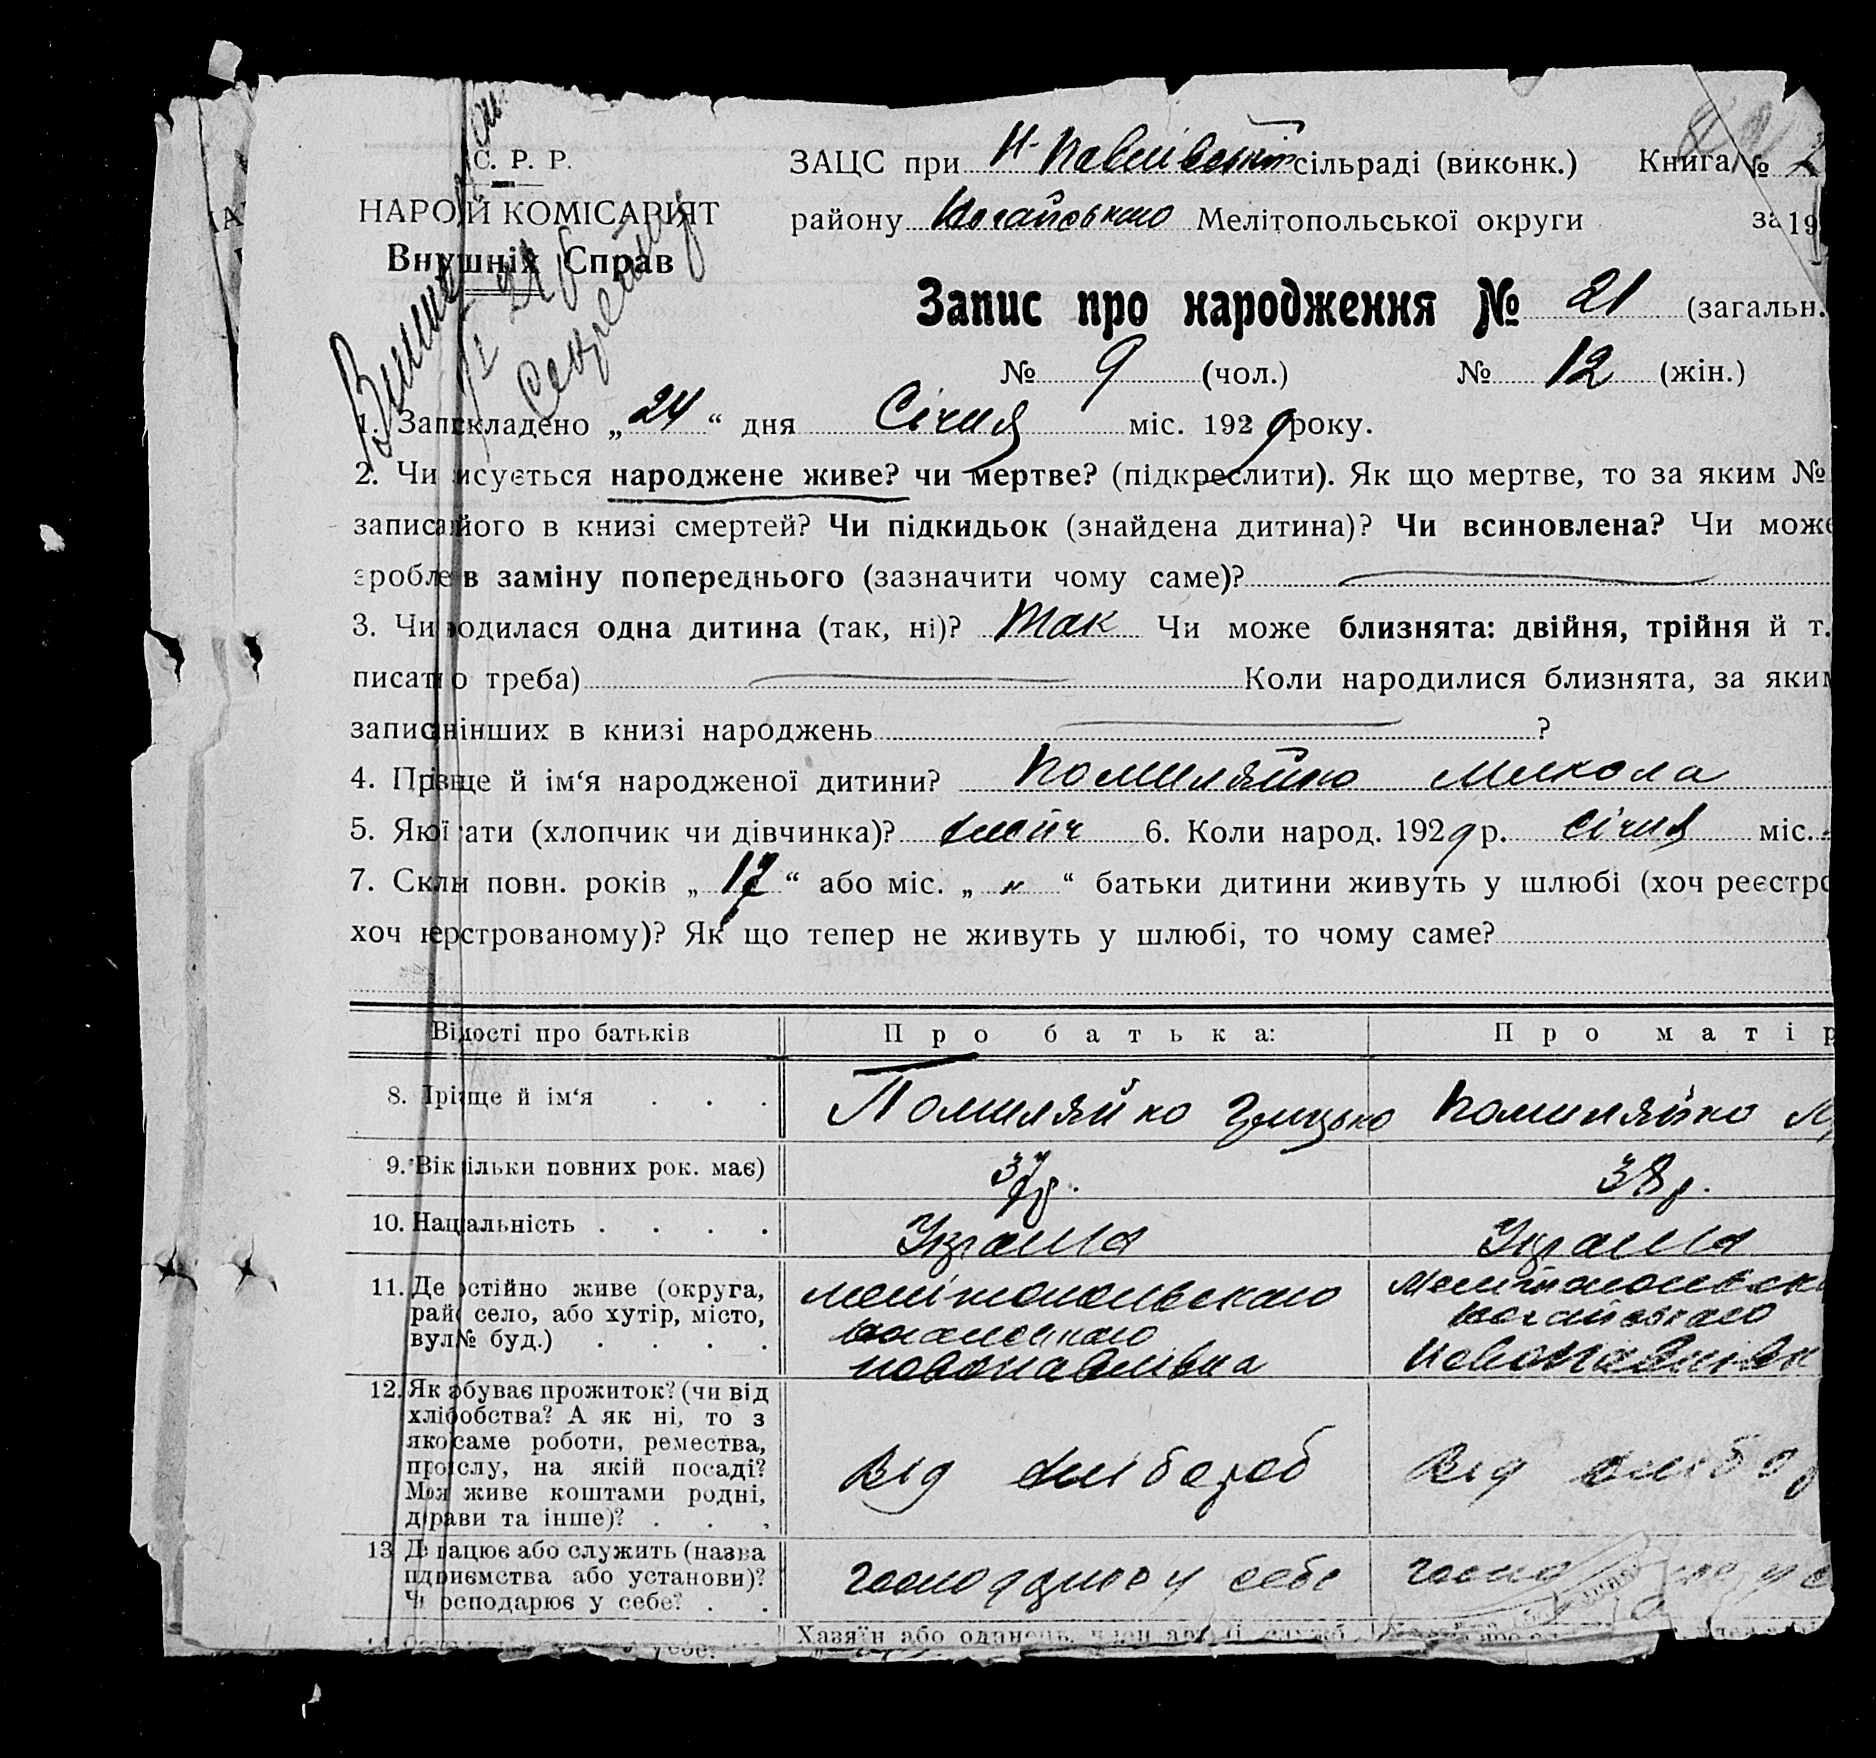 С. Р. Р.
НАРО Й КОМІСАРІЯТ
Внушніх Справ
ЗАЦС при Н-Павлівській сільраді (виконк.) Книга №
району Ногайського Мелітопольської округи за 19
Запис про народження № 21 (загальн.
№ 9 (чол.) № 12 (жін.)
1. Запскладено „24“ дня Січня міс. 1929 року.
2. Чи исується народжене живе? чи мертве? (підкреслити). Як що мертве, то за яким №
записайого в книзі смертей? Чи підкидьок (знайдена дитина)? Чи всиновлена? Чи може
зробле в заміну попереднього (зазначити чому саме)?
3. Чи одилася одна дитина (так, ні)? Так Чи може близнята: двійня, трійня й т.
писат о треба) Коли народилися близнята, за яким
запис інших в книзі народжень ?
4. Прізще й ім‘я народженої дитини? Помиляйко Микола
5. Якої ати (хлопчик чи дівчинка)? хлопч 6. Коли народ. 1929 р. січня міс.
7. Скли повн. років „17“ або міс. „ " “ батьки дитини живуть у шлюбі (хоч реєстро
хоч нерстрованому)? Як що тепер не живуть у шлюбі, то чому саме?
Відості про батьків Про батька: Про матір
8. Пріще й ім‘я . . . Помиляйко Грицько Помиляйко
9. Вік ільки повних рок. має) 37 р. 38 р.
10. Націальність . . . . Украина Украина
11. Де остійно живе (округа, Мелітопольского
рай село, або хутір, місто, Ногайського
вул№ буд.) . . . . Новопавлівка
12. Як обуває прожиток? (чи від
хлібобства? А як ні, то з
якосаме роботи, ремества,
прослу, на якій посаді? Від хлібороб Від хлібор
Моя живе коштами родні,
драви та інше)? . . .
13 Д рацює або служить (назва
пдриємства або установи)? господарює у себе
Ч осподарює у себе? . .
Хазяїн або одинець, член